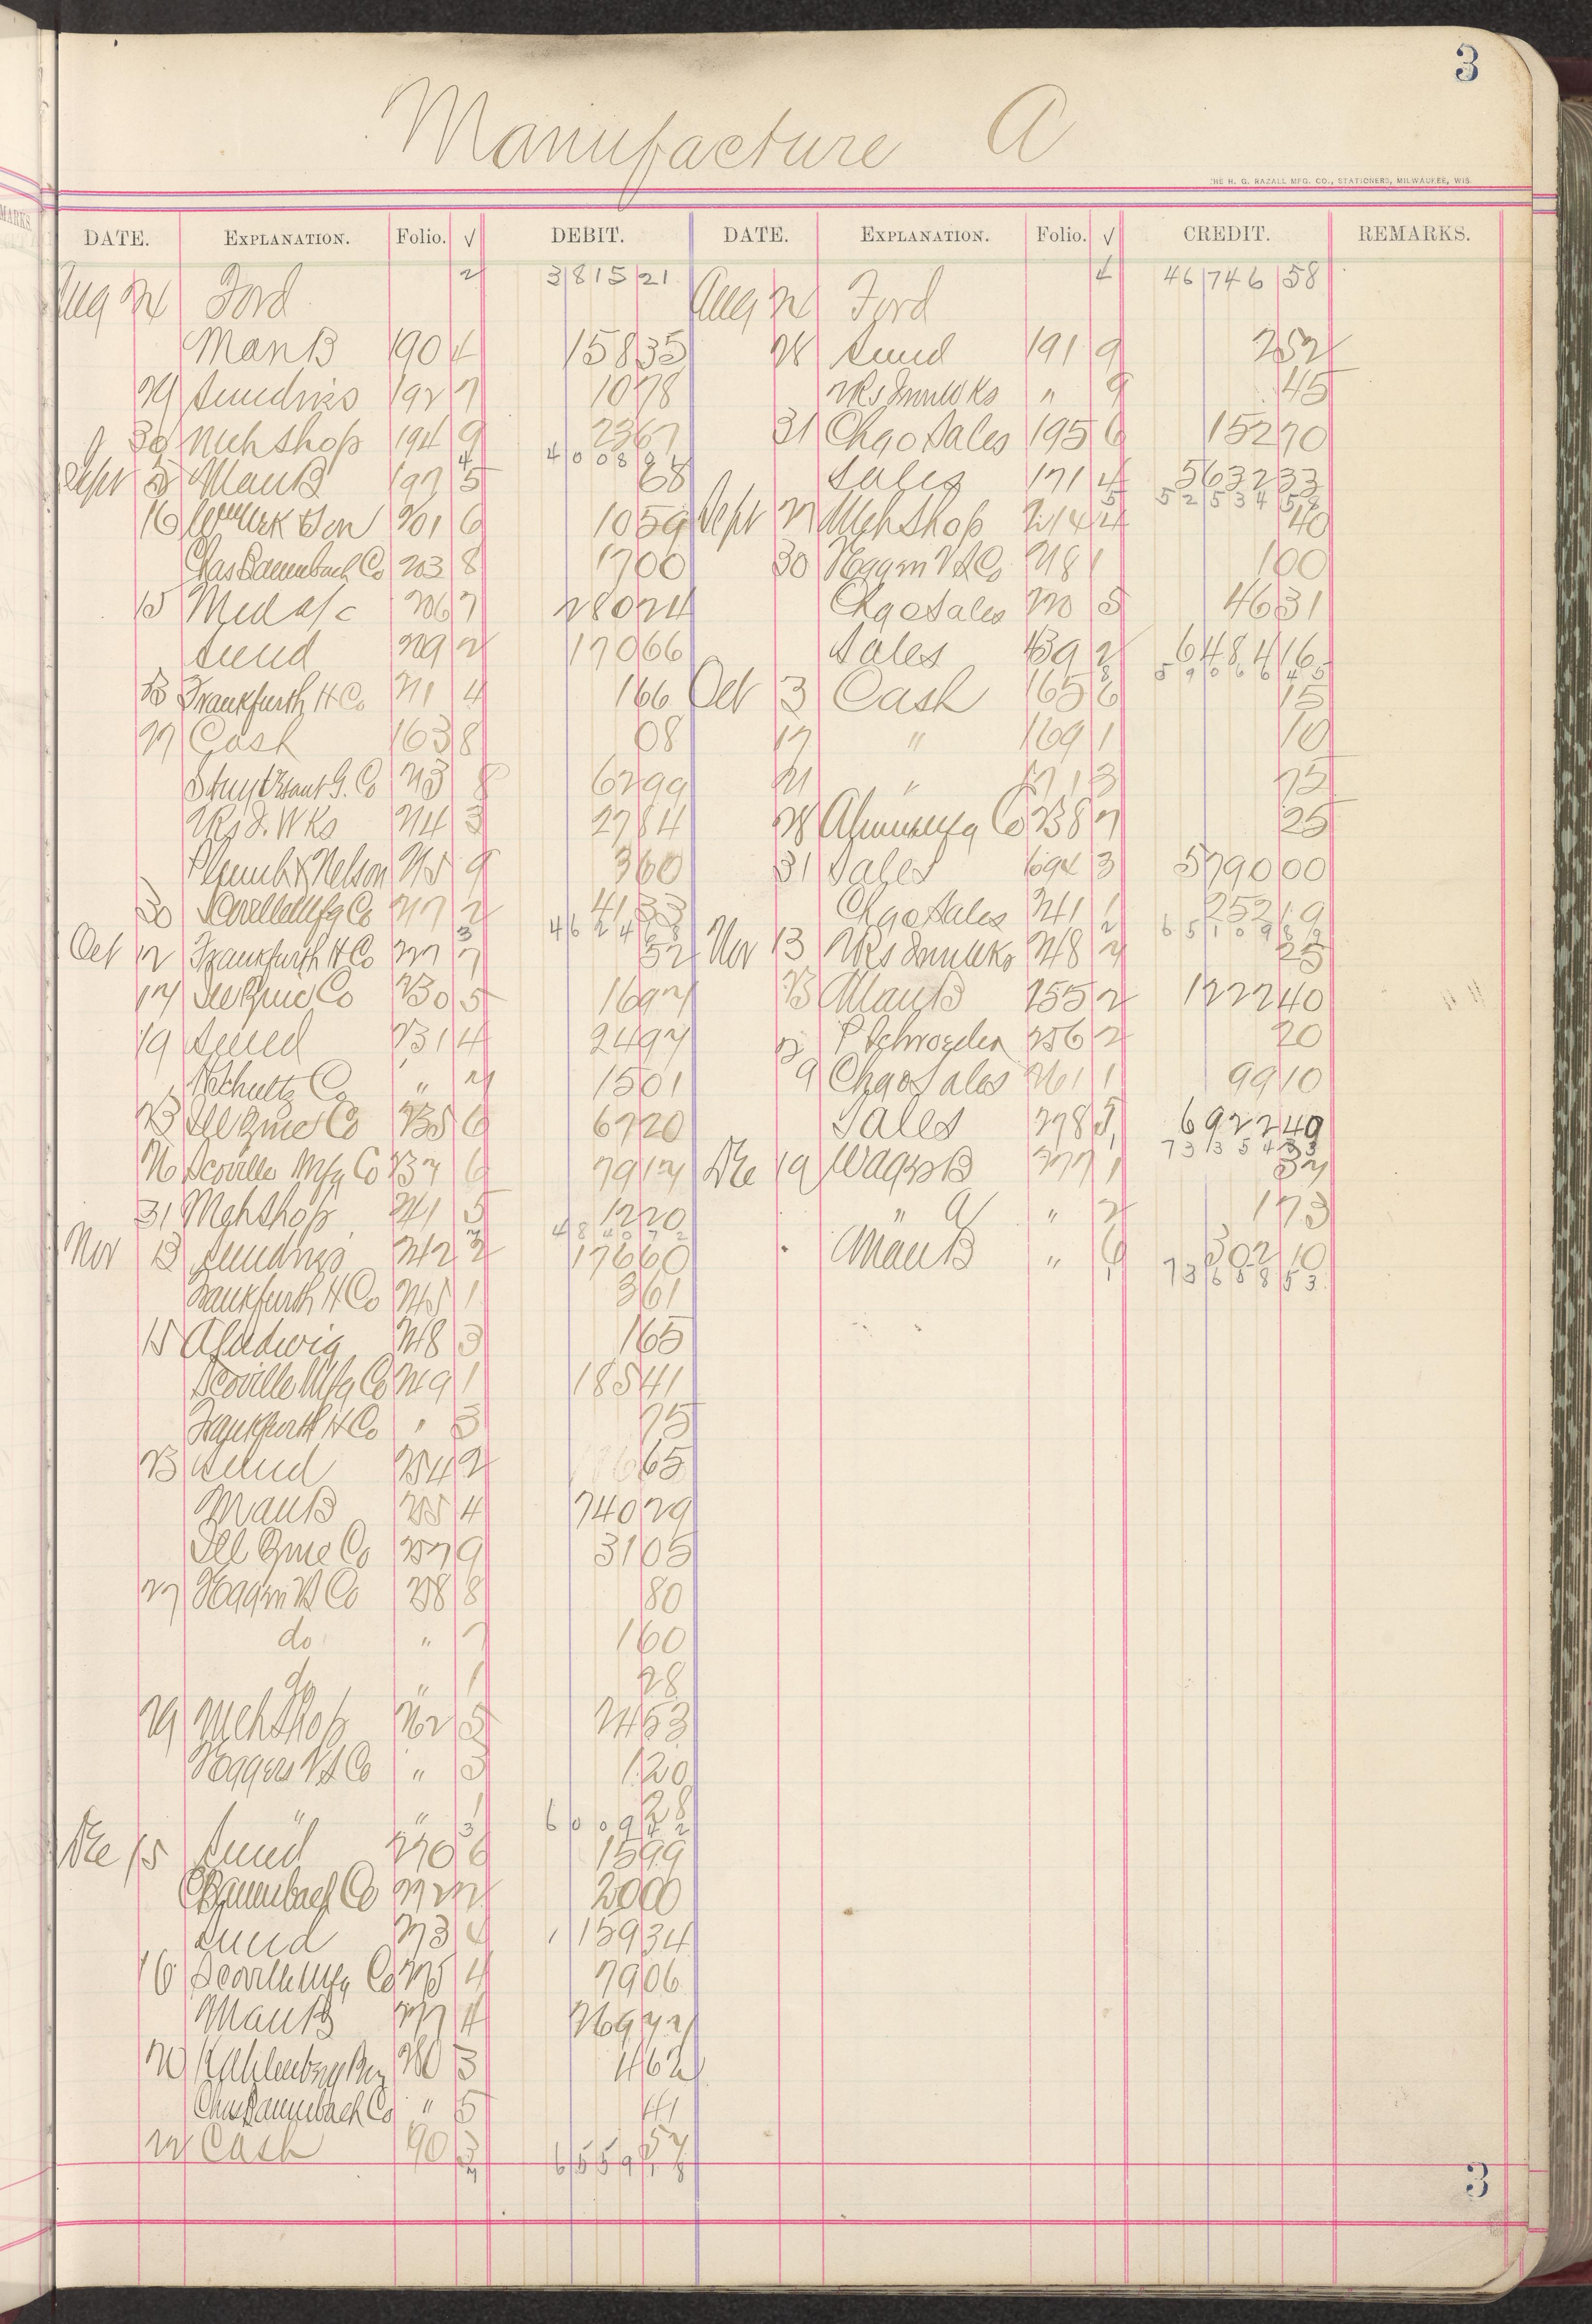 3
Manufacture A
THE H. G. RAZALL MFG. CO., STATIONERS, MILWAUKEE, WIS.
DATE. EXPLANATION. Folio. √ DEBIT. DATE. EXPLANATION. Folio. √ CREDIT. REMARKS.
Aug 24 Ford 2 3815 21 Aug 24 Ford 4 46746 58
Man B 190 4 158 35 28 Sund 191 9 2 52
29 Sundries 192 7 10 78 " 9 45
30 Meh Shop 194 9 23 67 31 Chgo Sales 195 6 152 70
4008 01
Sept 5 Man B 197 5 68 Sales 171 4 5632 33
52534 58
16 & Son 201 6 10 59 Sept 27 Meh Shop 214 4 40
Chas Baumbach Co 203 8 17 00 30 218 1 1 00
15 Med a/c 206 7 280 24 Chgo Sales 220 5 46 31
Sund 209 2 170 66 Sales 439 2 6484 16
59066 45
23 Frankfurth H Co 211 4 1 66 Oct 3 Cash 165 6 15
27 Cash 163 8 08 17 " 169 1 10
Stuytesant G. Co 213 8 62 99 21 " 171 3 75
213 27 84 28 Co 238 7 25
Plumb & Nelson 215 9 3 60 31 Sales 694 3 5790 00
30 Scoville Mfg Co 217 2 41 33 Chgo Sales 241 1 252 19
4624 68
65109 89
Oct 12 Frankfurth H Co 227 7 52 Nov 13 248 2 25
17 Ill Zinc Co 230 5 16 97 23 Man B 255 2 1222 40
19 Sund 231 4 24 97 P Schroeder 256 2 20
Schultz Co " 15 01 9 Chgo Sales 261 1 99 10
23 Ill Zinc Co 235 6 67 20 Sales 278 5 6922 40
73354 33
26 Scoville Mfg Co 237 6 79 17 Dec 19 Wages B 277 1 37
31 Meh Shop 241 5 12 20 " A " 2 1 73
Nov 13 Sundries 242 2 176 60 Man B " 6 302 10
73658 53
Frankfurth H Co 245 1 3 61
15 A Ludwig 248 3 1 65
Scoville Mfg Co 249 1 185 41
Frankfurth H Co " 3 75
23 Sund 254 2 65
Man B 255 4 740 29
Ill Zinc Co 257 9 31 05
27 Co 258 8 80
do " 7 1 60
do " 1 28
29 Meh Shop 262 5 24 53
Co " 3 1 20
" " 1 28
6009 42
Dec 15 Sund 270 6 15 99
C Baumbach Co 272 2 20 00
Sund 273 4 159 34
16 Scoville Mfg Co 275 4 79 06
Man B 277 4 269 72
20 Kahlenberg Bros 280 3 4 62
Chas Baumbach Co " 5 41
22 Cash 190 3 57
6559 18
3